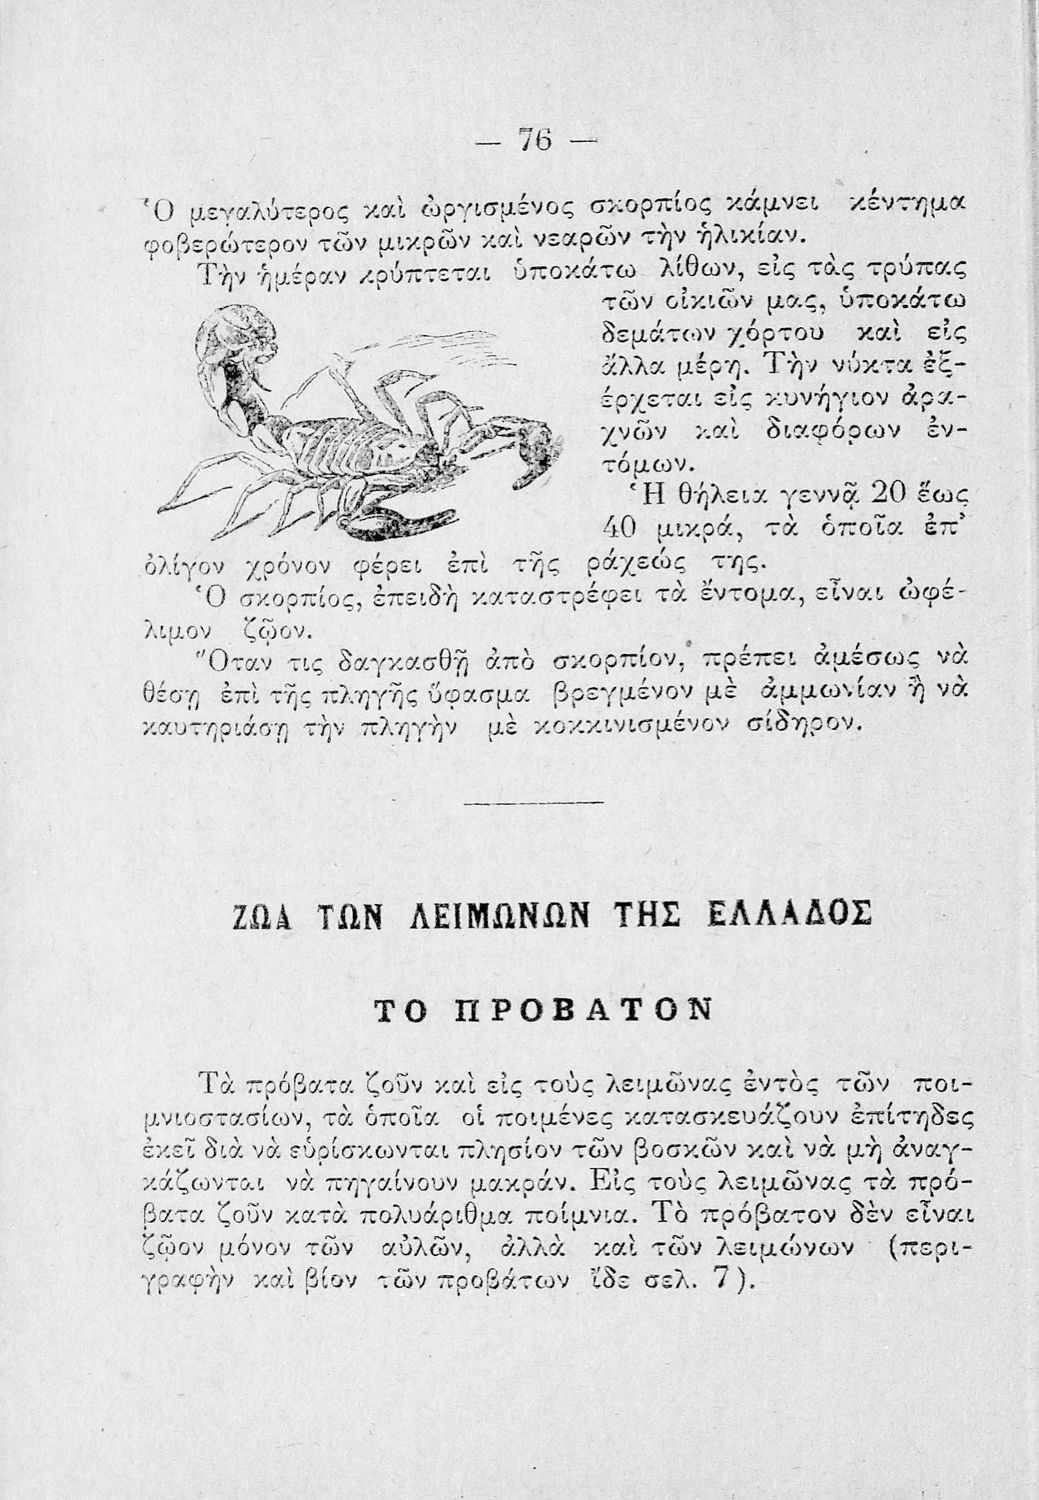 — 76 —
Ὁ μεγαλύτερος καὶ ὠργισμένος σκορπίος κάμνει κέντημα
φοβερώτερον τῶν μικρῶν καὶ νεαρῶν τὴν ἡλικίαν.
Τὴν ἡμέραν κρύπτεται ὑποκάτω λίθων, εἰς τὰς τρύπας
τῶν οἰκιῶν μας, ὑποκάτω
δεμάτων χόρτου καὶ εἰς
ἄλλα μέρη. Τὴν νύκτα ἐξ-
έρχεται εἰς κυνήγιον ἀρα-
χνῶν καὶ διαφόρων ἐν-
τόμων.
Ἡ θήλεια γεννᾷ 20 ἕως
40 μικρά, τὰ ὁποῖα ἐπ’
ὀλίγον χρόνον φέρει ἐπὶ τῆς ράχεώς της.
Ὁ σκορπίος, ἐπειδὴ καταστρέφει τὰ ἔντομα, εἶναι ὠφέ-
λιμον ζῷον.
Ὅταν τις δαγκασθῇ ἀπὸ σκορπίον, πρέπει ἀμέσως νὰ
θέσῃ ἐπὶ τῆς πληγῆς ὕφασμα βρεγμένον μὲ ἀμμωνίαν ἢ νὰ
καυτηριάσῃ τὴν πληγὴν μὲ κοκκινισμένον σίδηρον.
ΖΩΑ ΤΩΝ ΛΕΙΜΩΝΩΝ ΤΗΣ ΕΛΛΑΔΟΣ
ΤΟ ΠΡΟΒΑΤΟΝ
Τὰ πρόβατα ζοῦν καὶ εἰς τοὺς λειμῶνας ἐντὸς τῶν ποι-
μνιοστασίων, τὰ ὁποῖα οἱ ποιμένες κατασκευάζουν ἐπίτηδες
ἐκεῖ διὰ νὰ εὑρίσκωνται πλησίον τῶν βοσκῶν καὶ νὰ μὴ ἀναγ-
κάζωνται νὰ πηγαίνουν μακράν. Εἰς τοὺς λειμῶνας τὰ πρό-
βατα ζοῦν κατὰ πολυάριθμα ποίμνια. Τὸ πρόβατον δὲν εἶναι
ζῷον μόνον τῶν αὐλῶν, ἀλλὰ καὶ τῶν λειμώνων (περι-
γραφὴν καὶ βίον τῶν προβάτων ἴδε σελ. 7).